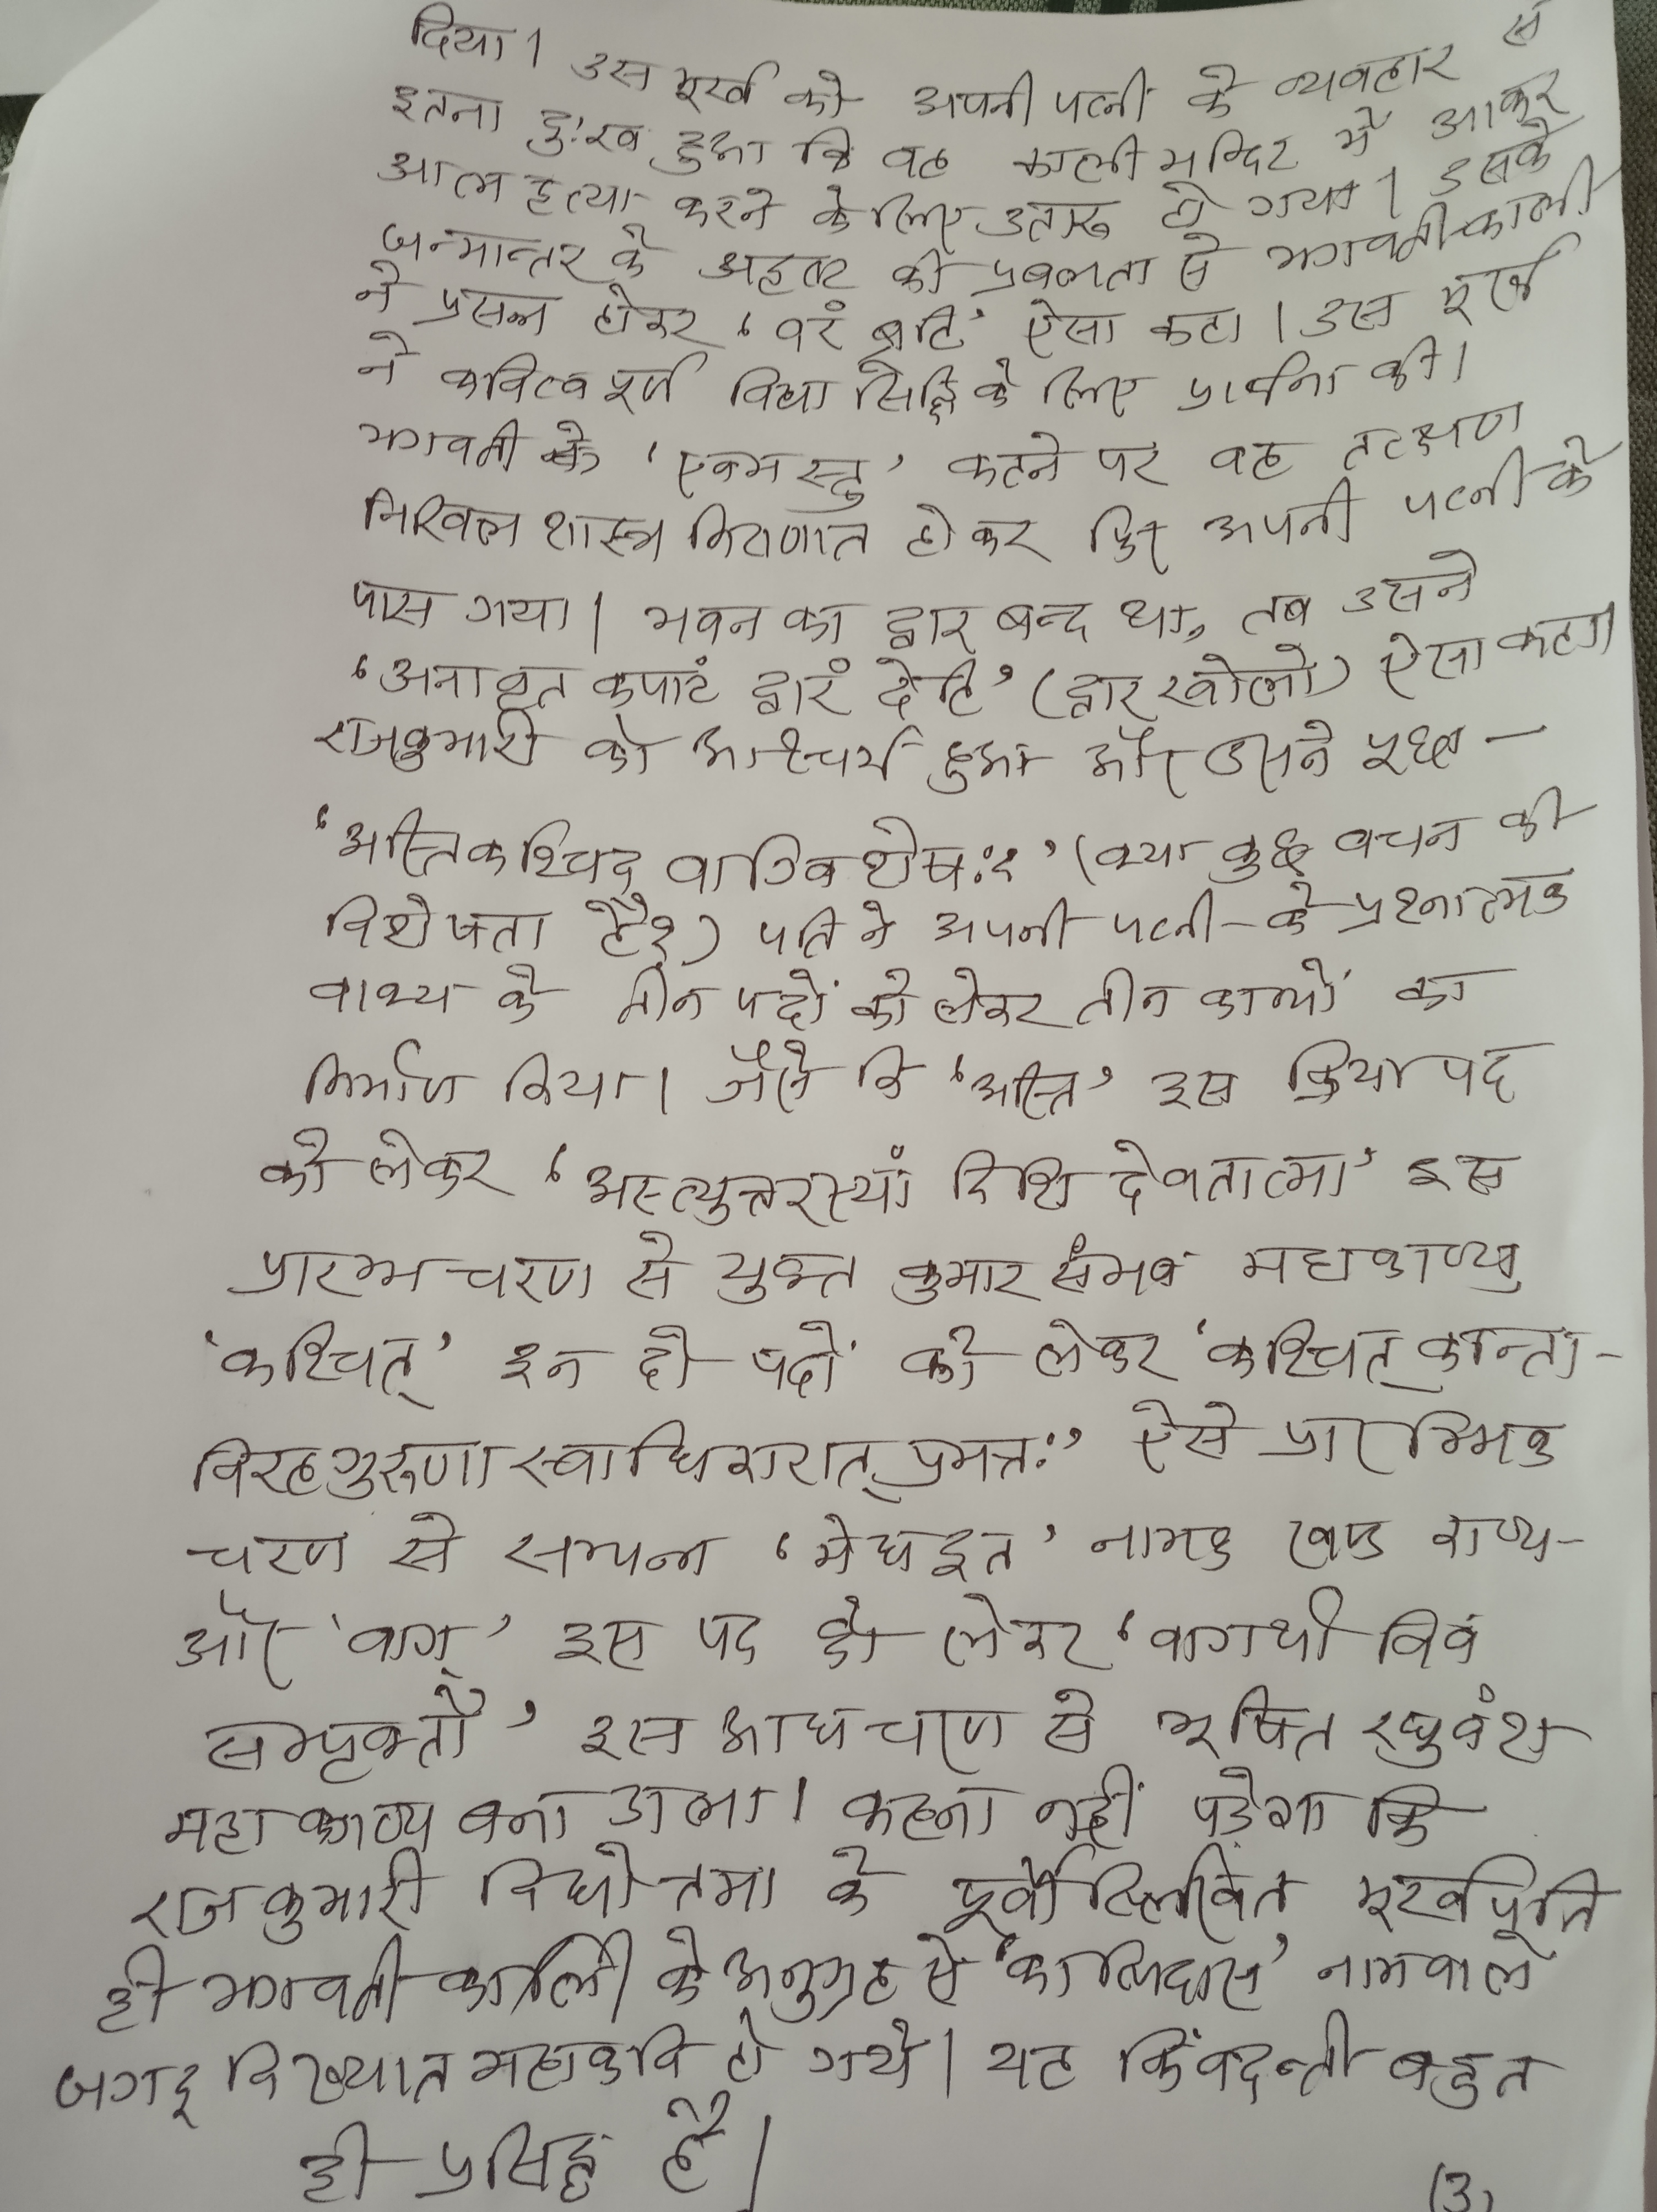 दिया। उस मूर्ख को अपनी पत्नी के व्यवहार से
इतना दुःख हुआ कि वह काली मन्दिर में आकर
आत्महत्या करने के लिए उतारू हो गया। उसके
जन्मान्तर के अदृष्ट की प्रबलता से भगवती काली
ने प्रसन्न होकर 'वरं ब्रूहि' ऐसा कहा। उस मूर्ख
ने कवित्व पूर्ण विद्या सिद्धि के लिए प्रार्थना की।
भगवती के 'एवमस्तु' कहने पर वह तत्क्षण
निखिल शास्त्र निष्णात होकर फिर अपनी पत्नी के
पास गया। भवन का द्वार बन्द था, तब उसने
'अनावृत कपाटं द्वारं देहि' (द्वार खोलो) ऐसा कहा।
राजकुमारी को आश्चर्य हुआ और उसने पूछा –
'अस्ति कश्चिद् वाग्विशेषः?' (क्या कुछ वचन की
विशेषता है?) पति ने अपनी पत्नी के प्रश्नात्मक
वाक्य के तीन पदों को लेकर तीन काव्यों का
निर्माण किया। जैसे कि 'अस्ति' इस क्रिया पद
को लेकर 'अस्त्युत्तरस्यां दिशि देवतात्मा' इस
प्रारम्भ चरण से युक्त कुमार संभव महाकाव्य
'कश्चित्' इन दो पदों को लेकर 'कश्चित् कान्ता-
विरहगुरुणा स्वाधिकारात् प्रमत्तः' ऐसे प्रारम्भिक
चरण से सम्पन्न 'मेघदूत' नामक खण्ड काव्य-
और 'वाग्' इस पद को लेकर 'वागर्थाविव
सम्पृक्तौ' इस आद्य चरण से भूषित रघुवंश
महाकाव्य बना डाला। कहना नहीं पड़ेगा कि
राजकुमारी विद्योत्तमा के पूर्वोल्लिखित मूर्ख पति
ही भगवती काली के अनुग्रह से 'कालिदास' नामवाले
जगद् विख्यात महाकवि हो गये। यह किंवदन्ती बहुत
ही प्रसिद्ध है।
(3)